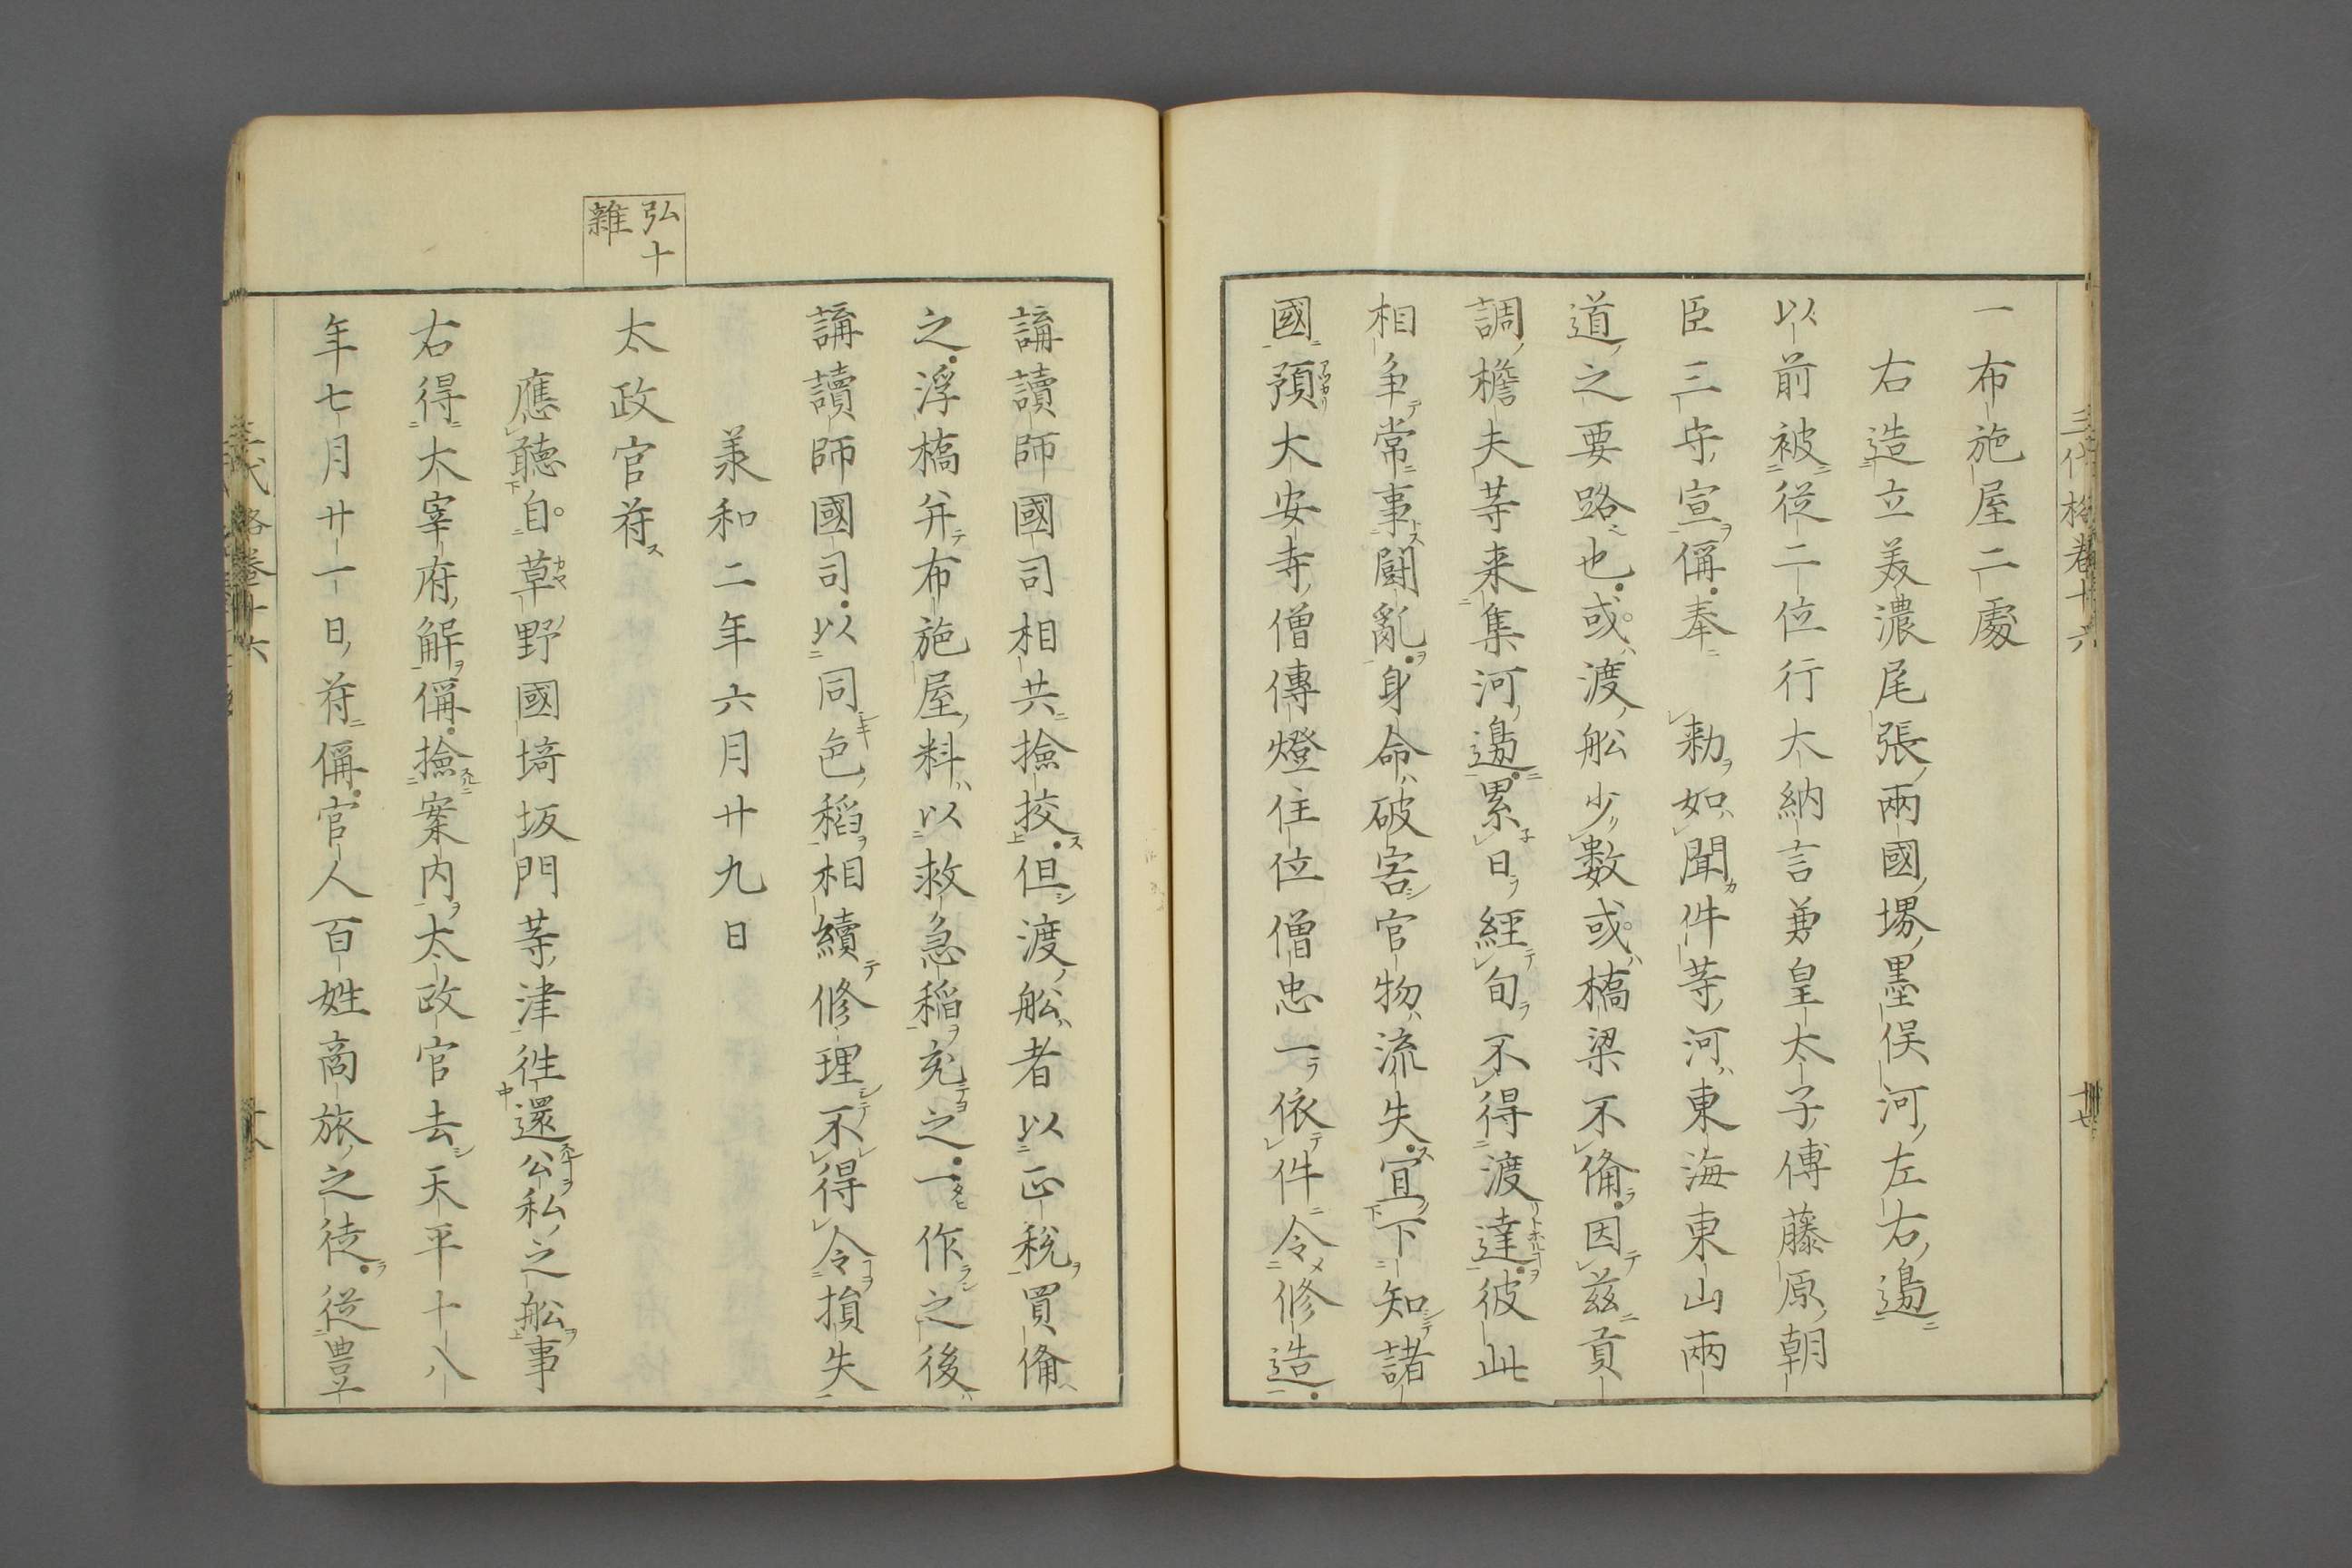 一布施屋二處
右造立美濃尾張兩國堺墨俣河左右邊
以前被從二位行大納言兼皇太子傅藤原朝
臣三守宣偁奉　勅如聞件等河東海東山兩
道之要路也或渡舩少數或橋梁不備因茲貢
調檐夫等来集河邊累日經旬不得渡達彼此
相争常事鬪亂身命破害官物流失宜下知諸
國預大安寺僧傳燈住位僧忠一依件令修造
講讀師國司相共撿挍但渡舩者以正稅買備
之浮橋并布施屋料以救急稲充之一作之後
講讀師國司以同色稻相續修理不得令損失
羕和二年六月廿九日
弘十
雜
太政官符
應聽自草野國埼坂門等津徃還公私之舩事
右得太宰府解偁撿案内太政官去天平十八
年七月廿一日符偁官人百姓商旅之徒從豊